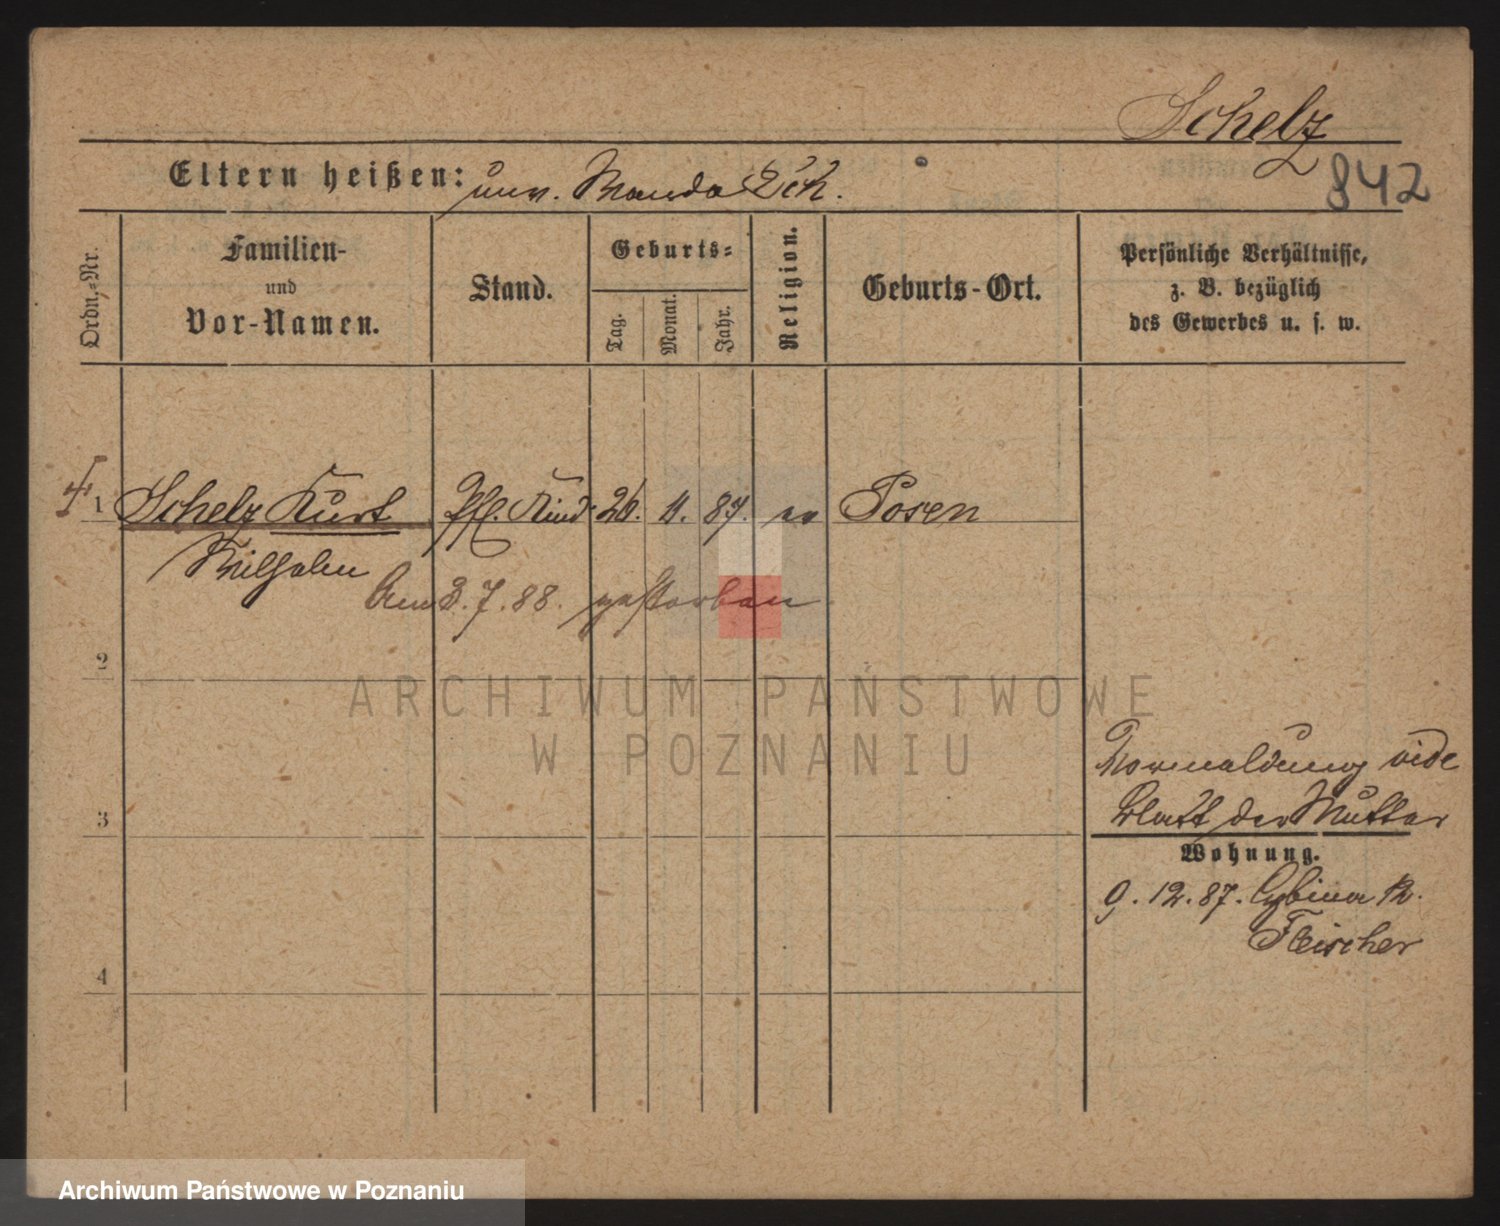 Schelz
842
Eltern heißen: unv. Wanda Sch.
Ordn.-Nr.
Familien- und Vor-Namen.
Stand.
Geburts-
Tag.
Monat.
Jahr.
Religion.
Geburts-Ort.
Persönliche Verhältnisse,
z. B. bezüglich
des Gewerbes u. s. w.
1 Schelz Kurt Pfl. Kind 26. 11. 87. ev Posen
Wilhelm
Am 3. 7. 88. gestorben
2
ARCHIWUM PAŃSTWOWE
W POZNANIU
vide
3
Blatt der Mutter
Wohnung.
9. 12. 87. Cybina
Fleischer
4
Archiwum Państwowe w Poznaniu